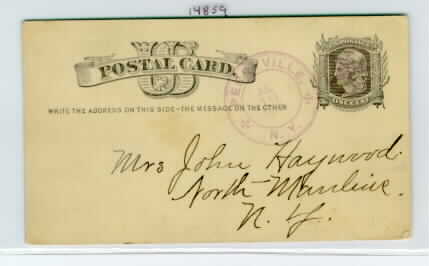 14859
U S
POSTAL CARD.
WRITE THE ADDRESS ON THIS SIDE - THE MESSAGE ON THE OTHER
N.Y.
ONE CENT
Mrs John Haywood.
North Manlius.
N. Y.